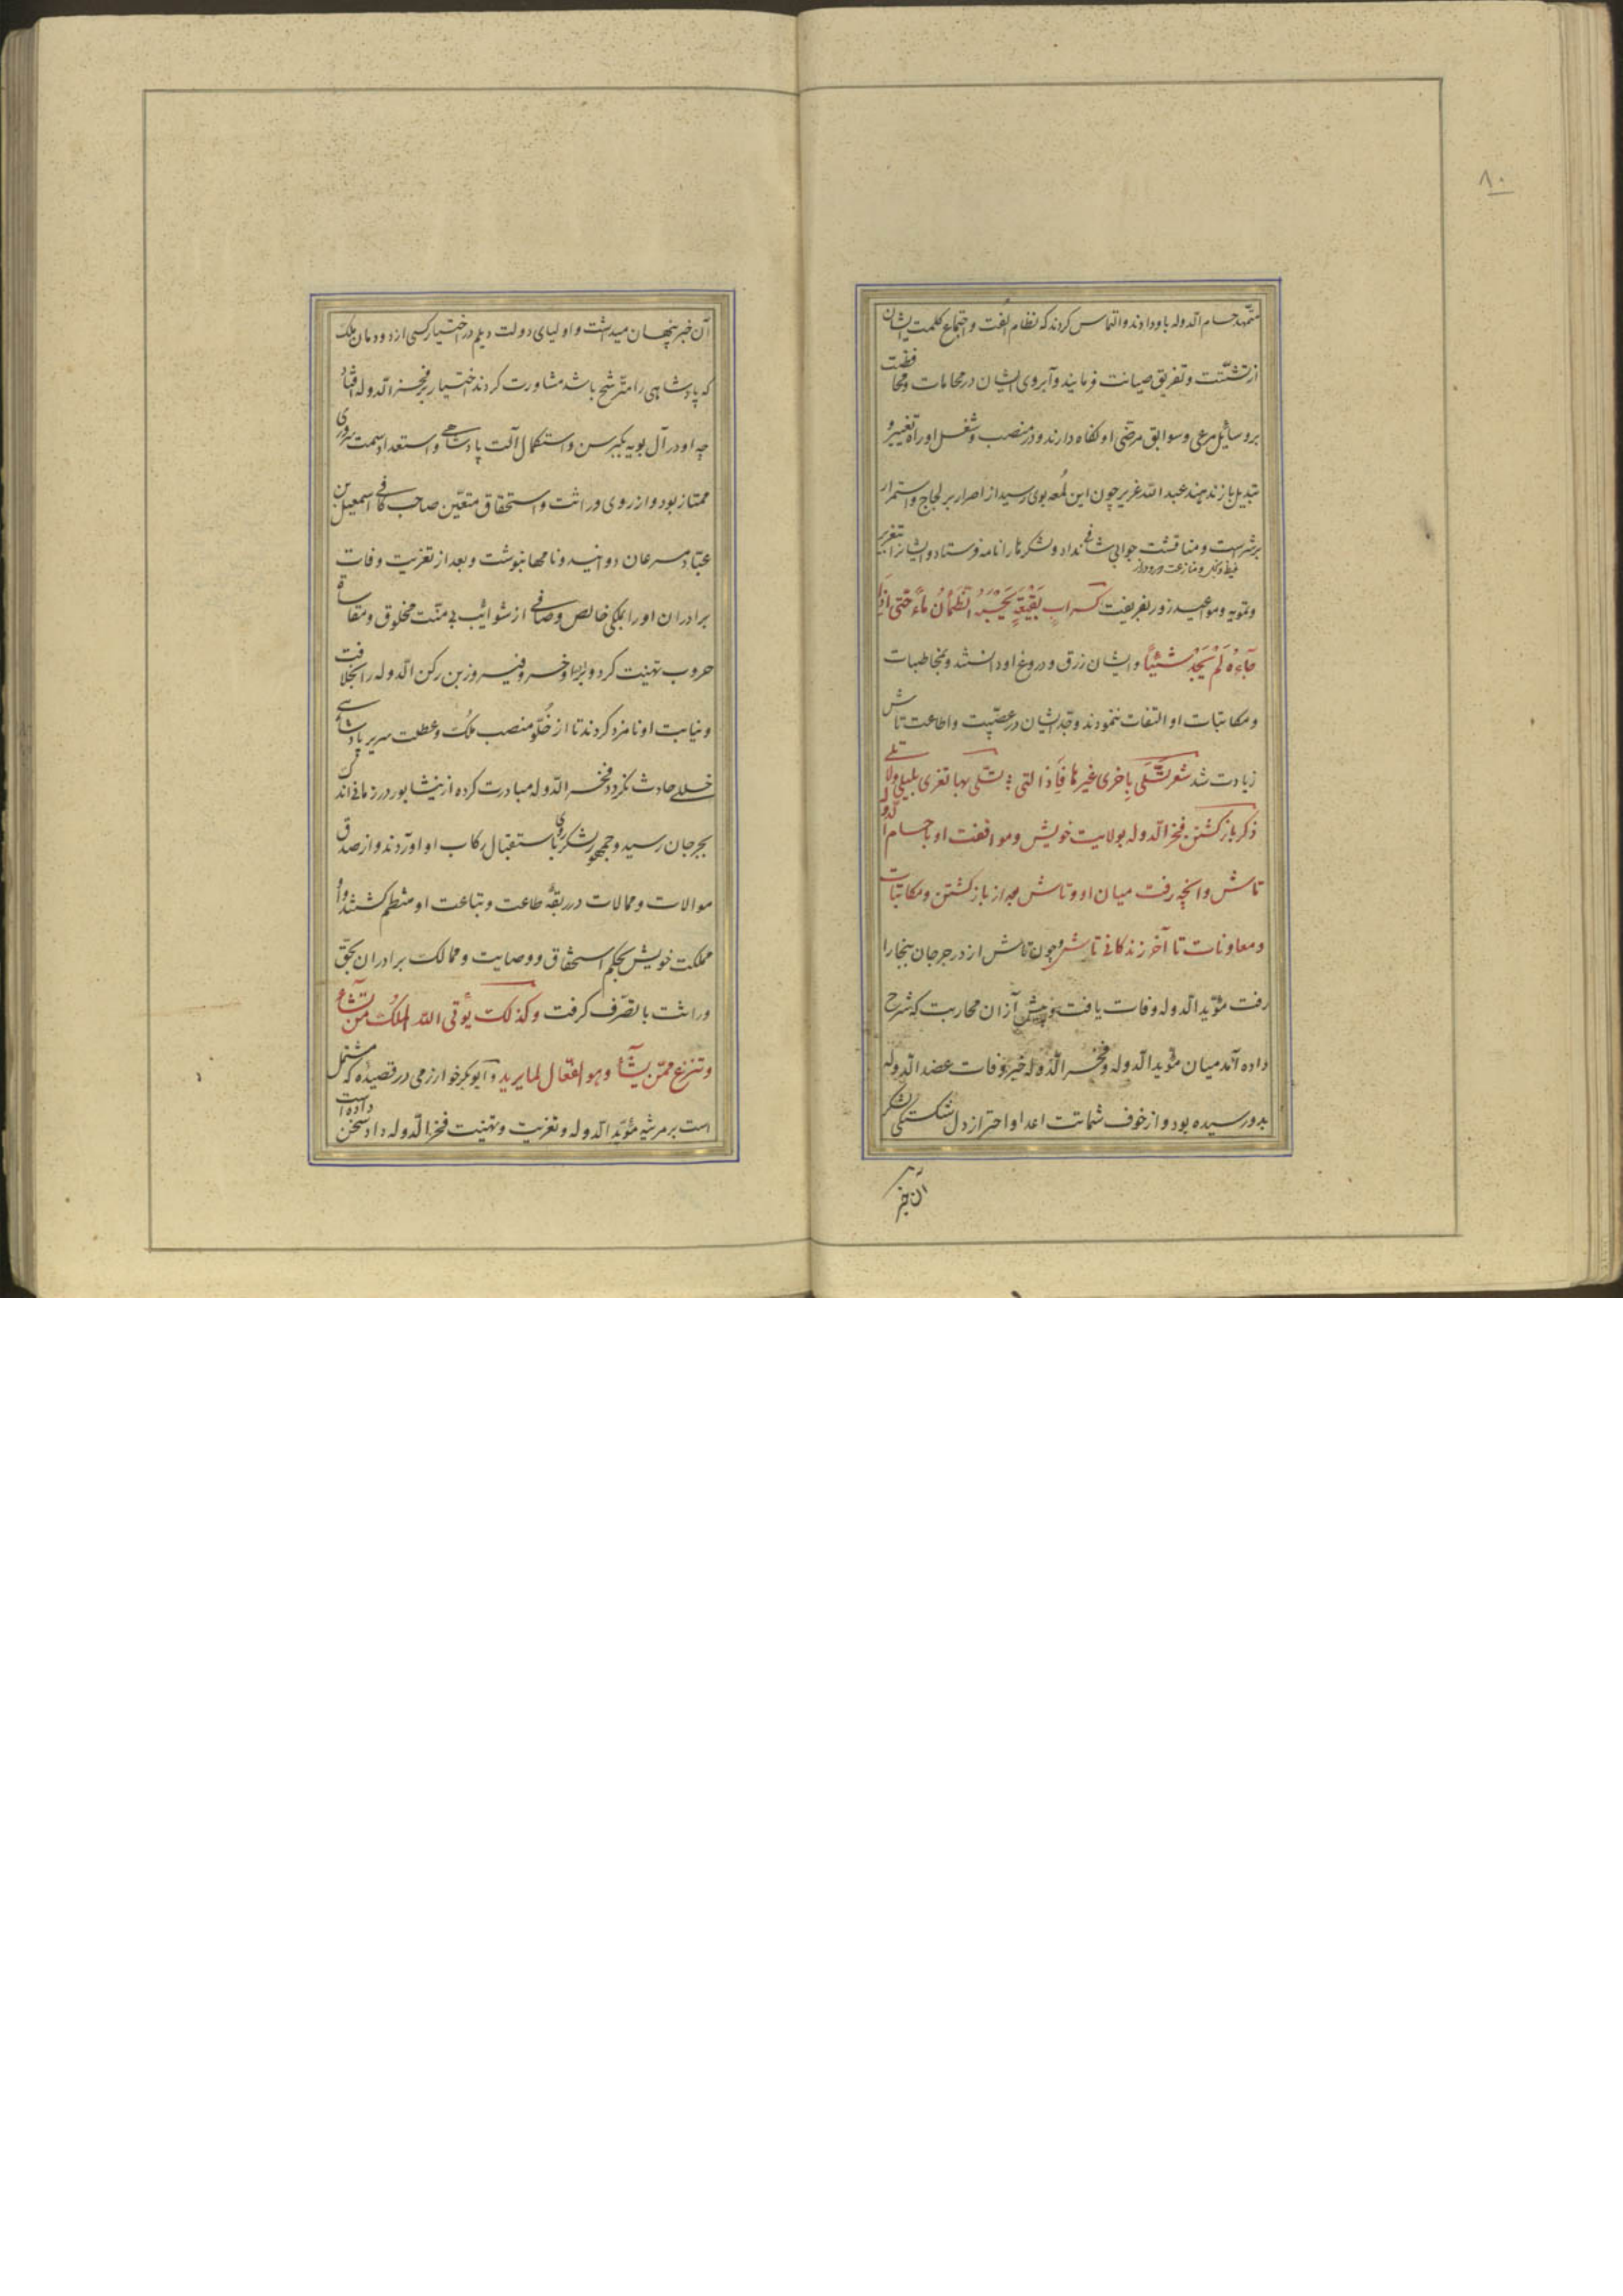 ۸۰
متمهد حسام الدوله باو دادند و التماس کردند که نظام الفت و اجتماع کلمت ایشان
از تشتت و تفریق صیانت فرمایند و آبروی ایشان در محامات و محافظت
بر وسائل مرعی و سوابق مرضی او نگاه دارند و در منصب و شغل او راه تغییر و
تبدیل باز ندهند عبد الله عزیر چون این لمعه بوی رسید از اصرار بر لجاج و استمرار
بر شراست و مناقشت جوابی شافی نداد و لشکرها را نامه فرستاد و ایشانرا بتغریر
و تمویه و مواعید زور بفریفت کسراب بقیعة یحسبه الظمآن ماءً حتی اذا
جآءه لم یجد شیئاً و ایشان زرق و دروغ او دانستند و بمخاطبات
و مکاتبات او التفات ننمودند و جد ایشان در عصبیت و اطاعت تاش
زیادت شد شعر تسلی باخری غیرها فاذا التی ؛ تسلی بها تغری بلیلی ولا تسلی
ذکر باز کشتن فخر الدوله بولایت خویش و موافقت او با حسام الدوله
تاش و انچه رفت میان او و تاش بعد از باز کشتن و مکاتبات
و معاونات تا آخر زندکانی تاش و چون تاش از در جرجان ببخارا
رفت مؤید الدوله وفات یافت و پیش از آن محاربت که شرح
داده آمد میان مؤید الدوله و فخر الدوله خبر وفات عضد الدوله
بدو رسیده بود و از خوف شماتت اعدا و احتراز دل شکستکی لشکر
آن خبر
آن خبر پنهان میداشت و اولیای دولت دیلم در اختیار کسی از دودمان ملک
که پادشاهی را مترشح باشد مشاورت کردند اختیار بر فخر الدوله افتاد
چه او در آل بویه بکبر سن و استکمال آلت پادشاهی و استعداد سمت سروری
ممتاز بود و از روی وراثت و استحقاق متعین صاحب کافی اسمعیل بن
عباد مسرعان دوانید و نامها نبوشت و بعد از تعزیت وفات
برادران او را بملکی خالص و صافی از شوایب بی منت مخلوق و مقاساة
حروب تهنیت کرد و برادر او خسرو فیروز بن رکن الدوله را بخلافت
و نیابت او نامزد کردند تا از خلو منصب ملک و عطلت سریر پادشاهی
خللی حادث نکردد فخر الدوله مبادرت کرده از نیشابور در زمانی اندک
بجرجان رسید و جمهور لشکر روی باستقبال رکاب او آوردند و از صدق
موالات و ممالات در ربقهٔ طاعت و تباعت او منتظم کشتند و او
مملکت خویش بحکم استحقاق و وصایت و ممالک برادران بحق
وراثت با تصرف کرفت و کذلک یؤتی الله الملک من یشآء
و تنزع ممن یشآء و هو الفعال لما یرید و ابو بکر خوارزمی در قصیده که مشتمل
است بر مرثیه مؤید الدوله و تعزیت و تهنیت فخر الدوله داد سخن داده است